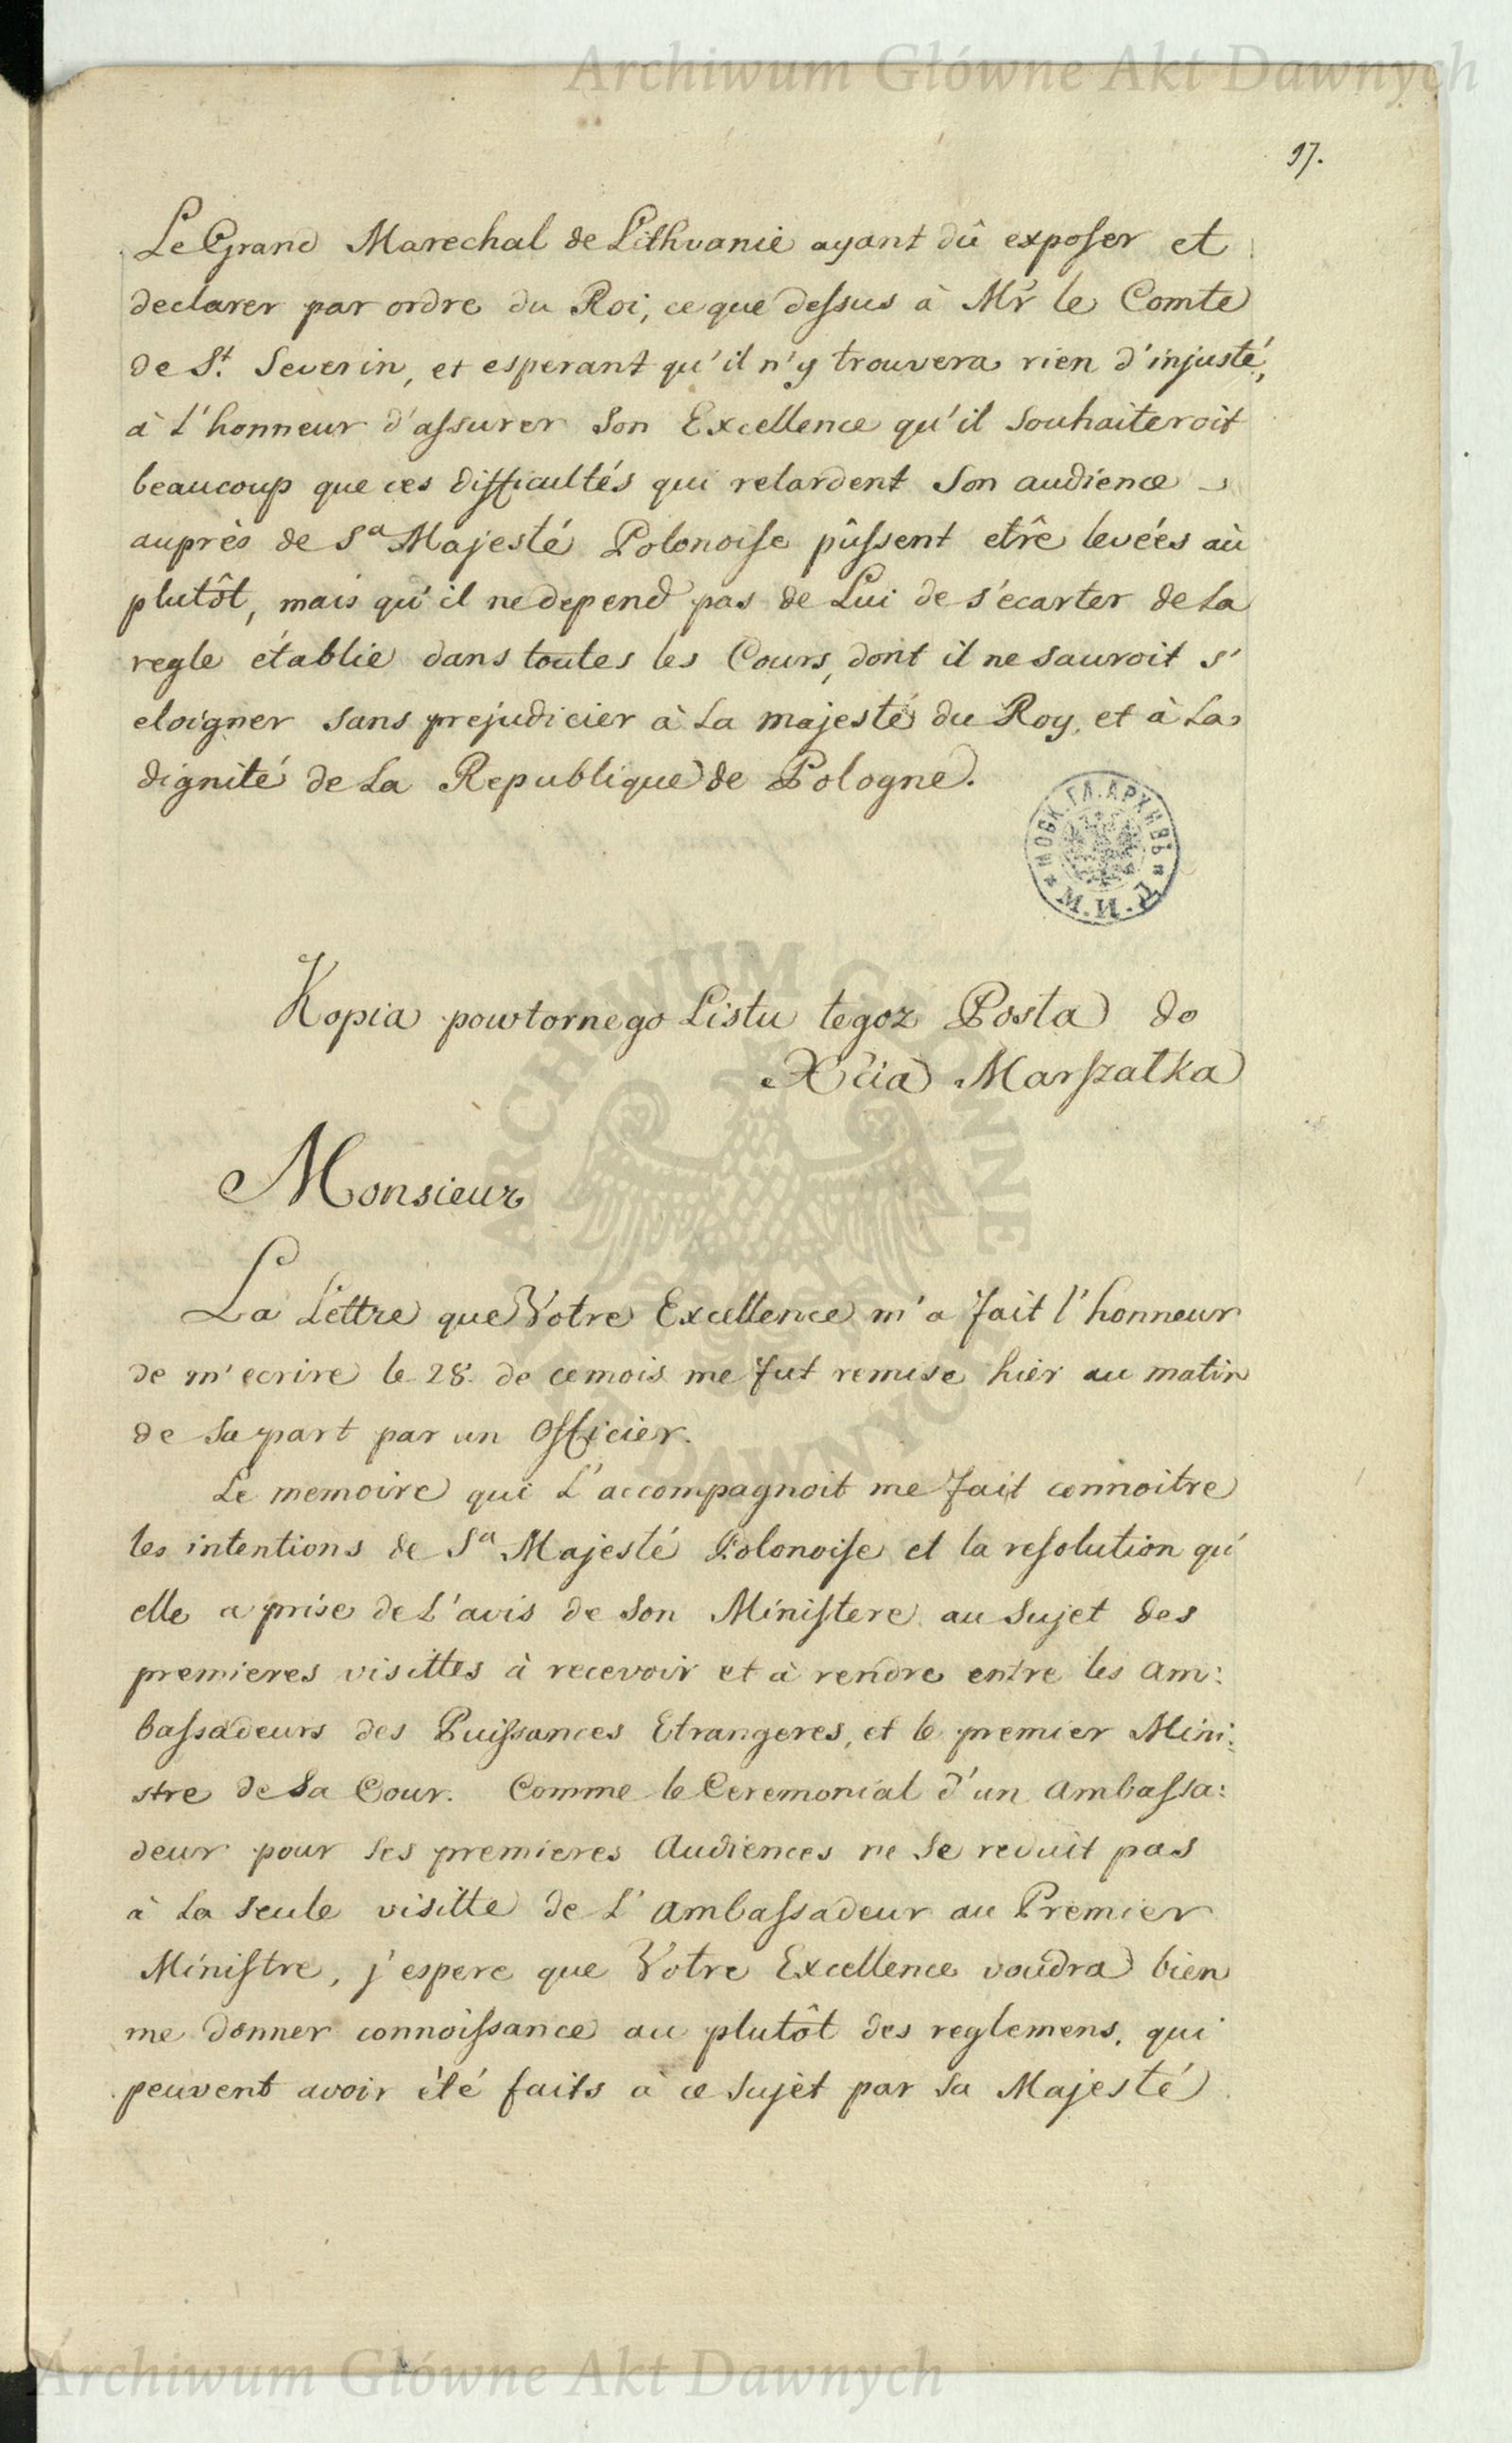 Archiwum Główne Akt Dawnych
97.
Le Grand Marechal de Lithvanie ayant dû exposer et
declarer par ordre du Roi, ce que dessus à Mr le Comte
de St. Severin, et esperant qu'il n'y trouvera rien d'injuste,
à l'honneur d'assurer Son Excellence qu'il souhaiteroit
beaucoup que ces difficultés qui retardent Son audience
auprès de Sa Majesté Polonoise pûssent etrê levées aù
plutôt, mais qu'il ne depend pas de Lui de s'ecarter de la
regle établie dans toutes les Cours, dont il ne sauroit s'
eloigner sans prejudicier à la majesté du Roy, et à la
dignité de la Republique de Pologne.
МОСК. ГЛ. АРХИВЪ * М. И. Д. *
Kopia powtornego Listu tegoz Posła do
Xcia Marszałka
Monsieur
La Lettre que Votre Excellence m'a fait l'honneur
de m'ecrire le 28. de ce mois me fut remise hier au matin
de Sa part par un Officier.
Le memoire qui L'accompagnoit me fait connoitre
les intentions de Sa Majesté Polonoise et la resolution qu'
elle a prise de L'avis de Son Ministere au Sujet des
premieres visittes à recevoir et à rendre entre les Am:
bassadeurs des Puissances Etrangeres, et le premier Mini:
stre de Sa Cour. Comme le Ceremonial d'un Ambassa:
deur pour Ses premieres Audiences ne Se reduit pas
à la Seule visitte de L'Ambassadeur au Premier
Ministre, j'espere que Votre Excellence voudra bien
me donner connoissance au plutôt des reglemens, qui
peuvent avoir été faits à ce Sujet par Sa Majesté
ARCHIWUM GŁÓWNE AKT DAWNYCH
Archiwum Główne Akt Dawnych